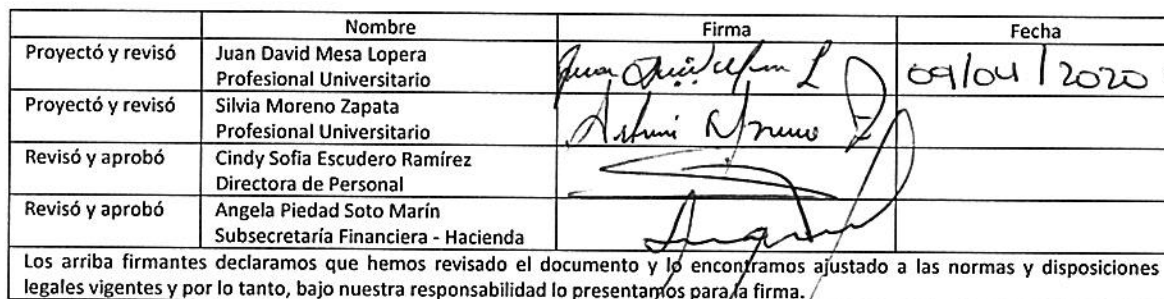 Nombre Firma Fecha
Proyectó y revisó Juan David Mesa Lopera Juan David Mesa L 09/04/2020
Profesional Universitario
Proyectó y revisó Silvia Moreno Zapata Moreno Z
Profesional Universitario
Revisó y aprobó Cindy Sofia Escudero Ramírez
Directora de Personal
Revisó y aprobó Angela Piedad Soto Marín
Subsecretaría Financiera - Hacienda
Los arriba firmantes declaramos que hemos revisado el documento y lo encontramos ajustado a las normas y disposiciones
legales vigentes y por lo tanto, bajo nuestra responsabilidad lo presentamos para la firma.